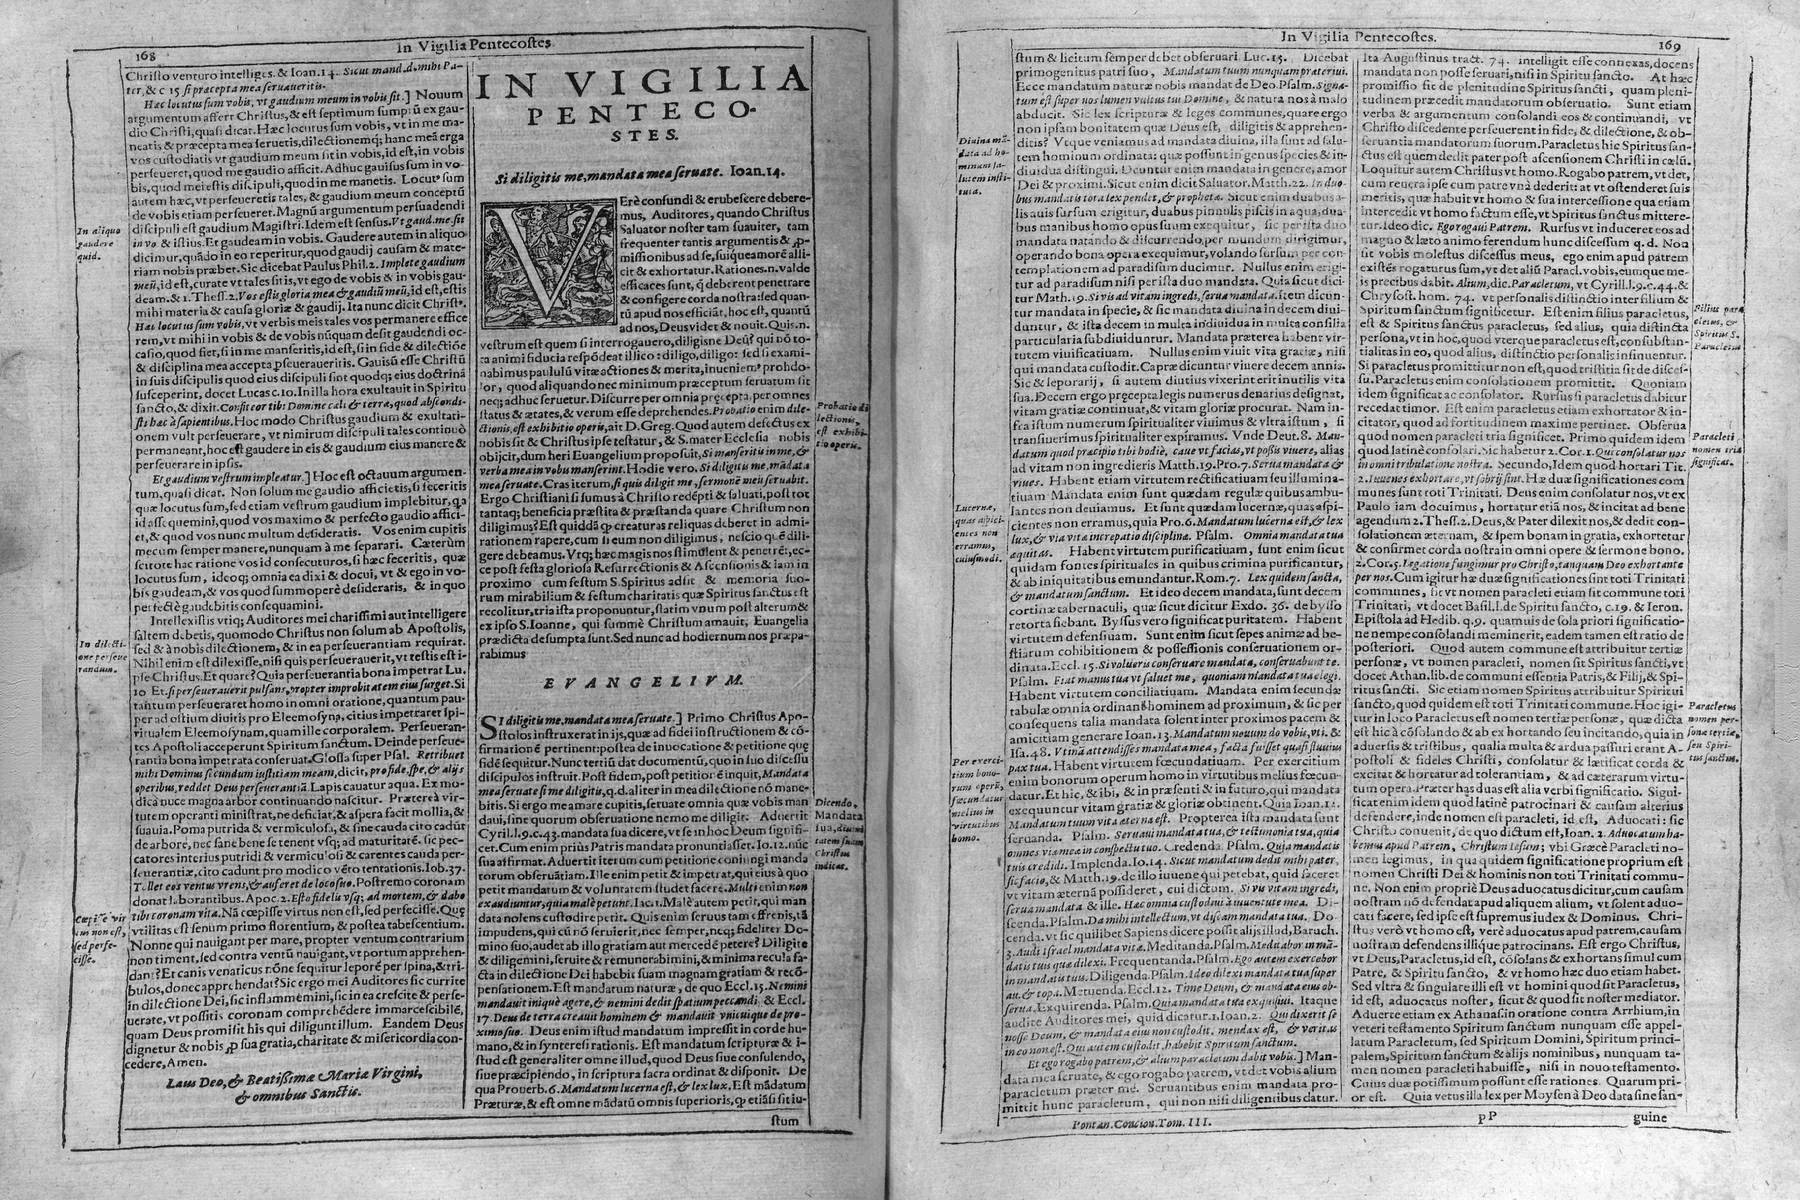 168
In Vigilia Pentecostes
Christo venturo intelliges. & Ioan. 14. Sicut mand. d. mihi Pa-
ter, & c 15 si præcepta mea seruaueritis.
Hæc locutus sum vobis, vt gaudium meum in vobis sit.] Nouum
argumentum affert Christus, & est septimum sumptũ ex gau-
dio Christi, quasi dicat. Hæc locutus sum vobis, vt in me ma-
neatis & præcepta mea seruetis, dilectionemq; hanc meã erga
vos custodiatis vt gaudium meum sit in vobis, id est, in vobis
perseueret, quod me gaudio afficit. Adhuc gauisus sum in vo-
bis, quod mei estis discipuli, quod in me manetis. Locut⁹ sum
autem hæc, vt perseueretis tales, & gaudium meum conceptũ
de vobis etiam perseueret. Magnũ argumentum persuadendi
discipuli est gaudium Magistri. Idem est sensus. Vt gaud. me. sit
in vo & istius. Et gaudeam in vobis. Gaudere autem in aliquo
dicimur, quãdo in eo reperitur, quod gaudij causam & mate-
riam nobis præbet. Sic dicebat Paulus Phil. 2. Implete gaudium
meũ, id est, curate vt tales sitis, vt ego de vobis & in vobis gau-
deam. & 1. Thess. 2. Vos estis gloria mea & gaudiũ meũ, id est, estis
mihi materia & causa gloriæ & gaudij. Ita nunc dicit Christ⁹.
Hæc locutus sum vobis, vt verbis meis tales vos permanere effice
rem, vt mihi in vobis & de vobis nũquam desit gaudendi oc-
casio, quod fiet, si in me manseritis, id est, si in fide & dilectiõe
& disciplina mea accepta perseueraueritis. Gauisũ esse Christũ
in suis discipulis quod eius discipuli sint quodq; eius doctrinã
susceperint, docet Lucas c. 10. In illa hora exultauit in Spiritu
sancto, & dixit. Confiteor tibi Domine cæli & terræ, quod abscondi-
sti hæc à sapientibus. Hoc modo Christus gaudium & exultati-
onem vult perseuerare, vt nimirum discipuli tales continuò
permaneant, hoc est gaudere in eis & gaudium eius manere &
perseuerare in ipsis.
Et gaudium vestrum impleatur.] Hoc est octauum argumen-
tum, quasi dicat. Non solum me gaudio afficietis, si feceritis
quæ locutus sum, sed etiam vestrum gaudium implebitur, q
id asse quemini, quod vos maximo & perfecto gaudio affici-
et, & quod vos nunc multum desideratis. Vos enim cupitis
mecum semper manere, nunquam à me separari. Cæterùm
scitote hac ratione vos id consecuturos, si hæc feceritis, quæ
locutus sum, ideoq; omnia ea dixi & docui, vt & ego in vo-
bis gaudeam, & vos quod summoperè desideratis, & in quo
perfectè gaudebitis consequamini.
Intellexistis vtiq; Auditores mei charissimi aut intelligere
saltem debetis, quomodo Christus non solum ab Apostolis,
sed & à nobis dilectionem, & in ea perseuerantiam requirat.
Nihil enim est dilexisse, nisi quis perseuerauerit, vt testis est i-
pse Christus. Et quare? Quia perseuerantia bona impetrat Lu.
10 Et si perseuerauerit pulsans, propter improbitatem eius surget. Si
tantum perseueraret homo in omni oratione, quantum pau-
per ad ostium diuitis pro Eleemosyna, citius impetraret spi-
ritualem Eleemosynam, quam ille corporalem. Perseueran-
tes Apostoli acceperunt Spiritum sanctum. Deinde perseue-
rantia bona impetrata conseruat. Glossa super Psal. Retribuet
mihi Dominus secundum iustitiam meam, dicit, pro fide, spe, & alijs
operibus, reddet Deus perseuerantiã. Lapis cauatur aqua. Ex mo-
dica nuce magna arbor continuando nascitur. Præterà vir-
tutem operanti ministrat, ne deficiat, & aspera facit mollia, &
suauia. Poma putrida & vermiculosa, & sine cauda cito cadũt
de arbore, nec sanè bene se tenent vsq; ad maturitatẽ. Sic pec-
catores interius putridi & vermiculosi & carentes cauda per-
seuerantiæ, cito cadunt pro modico vẽto tentationis. Iob. 37.
Tollet eos ventus vrens, & auferet de loco suo. Postremo coronam
donat laborantibus. Apoc. 2. Esto fidelis vsq; ad mortem, & dabo
tibi coronam vitæ. Nã cœpisse virtus non est, sed perfecisse. Quę
vtilitas est senum primo florentium, & postea tabescentium.
Nonne qui nauigant per mare, propter ventum contrarium
non timent, sed contra ventũ nauigant, vt portum apprehen-
dant? Et canis venaticus nõne sequitur leporẽ per spina, & tri-
bulos, donec apprehendat? Sic ergo mei Auditores sic currite
in dilectione Dei, sic inflammemini, sic in ea crescite & perse-
uerate, vt possitis coronam comprehẽdere immarcescibilẽ,
quam Deus promisit his qui diligunt illum. Eandem Deus
dignetur & nobis ꝓ sua gratia, charitate & misericordia con-
cedere, Amen.
Laus Deo, & Beatissimæ Mariæ Virgini,
& omnibus Sanctis.
In aliquo
gaudere
quid.
In dilecti-
one perseue
randum.
Cœpisse vir
tus non est,
sed perfe-
cisse.
IN VIGILIA
PENTECO-
STES.
Si diligitis me, mandata mea seruate. Ioan. 14.
VErè confundi & erubescere debere-
mus, Auditores, quando Christus
Saluator noster tam suauiter, tam
frequenter tantis argumentis & ꝓ-
missionibus ad se, suique amorẽ alli-
cit & exhortatur. Rationes. n. valde
efficaces sunt, q̃ deberent penetrare
& configere corda nostra: sed quan-
tũ apud nos efficiãt, hoc est, quantũ
ad nos, Deus videt & nouit. Quis. n.
vestrum est quem si interrogauero, diligisne Deũ? qui nõ to-
ta animi fiducia respõdeat illico: diligo, diligo: sed si exami-
nabimus paululũ vitæ actiones & merita, inueniem⁹ proh do-
lor, quod aliquando nec minimum præceptum seruatum sit
neq; adhuc seruetur. Discurre per omnia pręcepta, per omnes
status & ætates, & verum esse deprehendes. Probatio enim dile-
ctionis, est exhibitio operis, ait D. Greg. Quod autem defectus ex
nobis sit & Christus ipse testatur, & S. mater Ecclesia nobis
obijcit, dum heri Euangelium proposuit, Si manseritis in me, &
verba mea in vobis manserint. Hodie vero. Si diligitis me, mãdata
mea seruate. Cras iterum, si quis diligit me, sermonẽ meũ seruabit.
Ergo Christiani si sumus à Christo redẽpti & saluati, post tot
tantaq; beneficia præstita & præstanda quare Christum non
diligimus? Est quiddã q creaturas reliquas deberet in admi-
rationem rapere, cum si eum non diligimus, nescio quẽ dili-
gere debeamus. Vtq; hæc magis nos stimulent & penetrẽt, ec-
ce post festa gloriosa Resurrectionis & Ascensionis & iam in
proximo cum festum S. Spiritus adsit & memoria suo-
rum mirabilium & festum charitatis quæ Spiritus sanctus est
recolitur, tria ista proponuntur, statim vnum post alterum &
ex ipso S. Ioanne, qui summè Christum amauit, Euangelia
prædicta desumpta sunt. Sed nunc ad hodiernum nos præpa-
rabimus
EVANGELIVM.
SI diligitis me, mandata mea seruate.] Primo Christus Apo-
stolos instruxerat in ijs, quæ ad fidei instructionem & cõ-
firmationẽ pertinent: postea de inuocatione & petitione quę
fidẽ sequitur. Nunc tertiũ dat documẽtũ, quo in suo discessu
discipulos instruit. Post fidem, post petitionẽ inquit, Mandata
mea seruate si me diligitis, q. d. aliter in mea dilectione nõ mane-
bitis. Si ergo me amare cupitis, seruate omnia quæ vobis man
daui, sine quorum obseruatione nemo me diligit. Aduertit
Cyril. l. 9. c. 43. mandata sua dicere, vt se in hoc Deum signifi-
cet. Cum enim priùs Patris mandata pronuntiasset. Io. 12. nũc
sua affirmat. Aduertit iterum cum petitione coniungi manda
torum obseruãtiam. Ille enim petit & impetrat, qui eius à quo
petit mandatum & voluntatem studet facere. Multi enim non
exaudiuntur, quia malè petunt. Iac. 1. Malè autem petit, qui man
data nolens custodire petit. Quis enim seruus tam effrenis, tã
impudens, qui cũ nõ seruierit, nec semper, neq; fideliter Do-
mino suo, audet ab illo gratiam aut mercedẽ petere? Diligite
& diligemini, seruite & remunerabimini, & minima recula fa-
cta in dilectione Dei habebit suam magnam gratiam & recõ-
pensationem. Est mandatum naturæ, de quo Eccl. 15. Nemini
mandauit iniquè agere, & nemini dedit spatium peccandi & Eccl.
17. Deus de terra creauit hominem & mandauit vnicuique de pro-
ximo suo. Deus enim istud mandatum impressit in corde hu-
mano, & in synteresi rationis. Est mandatum scripturæ & i-
stud est generaliter omne illud, quod Deus siue consulendo,
siue præcipiendo, in scriptura sacra ordinat & disponit. De
qua Prouerb. 6. Mandatum lucerna est, & lex lux. Est mãdatum
Præturæ, & est omne mãdatũ omnis superioris, q etiãsi sit iu-
stum
Probatio di
lectionis,
est exhibi-
tio operis.
Dicendo,
Mandata
sua, diuini
tatem suam
Christus
indicat.
In Vigilia Pentecostes.
169
stum & licitum semper debet obseruari Luc. 15. Dicebat
primogenitus patri suo, Mandatum tuum nunquam præteriui.
Ecce mandatum naturæ nobis mandat de Deo. Psalm. Signa-
tum est super nos lumen vultus tui Domine, & natura nos à malo
abducit. Sic lex scripturæ & leges communes, quare ergo
non ipsam bonitatem quæ Deus est, diligitis & apprehen-
ditis? Vtque veniamus ad mandata diuina, illa sunt ad salu-
tem hominum ordinata: quæ possunt in genus species & in-
diuidua distingui. Dicuntur enim mandata in genere, amor
Dei & proximi. Sicut enim dicit Saluator. Matth. 22. In duo-
bus mandatis tota lex pendet, & prophetæ. Sicut enim duabus a-
lis auis sursum erigitur, duabus pinnulis piscis in aqua, dua-
bus manibus homo opus suum exequitur, sic per ista duo
mandata natando & discurrendo, per mundum dirigimur,
operando bona opera exequimur, volando sursum per con-
templationem ad paradisum ducimur. Nullus enim erigi-
tur ad paradisum nisi per ista duo mandata. Quia sicut dici-
tur Math. 19. Si vis ad vitam ingredi, serua mandata. Item dicun-
tur mandata in specie, & sic mandata diuina in decem diui-
duntur, & ista decem in multa indiuidua in multa consilia
particularia subdiuiduntur. Mandata præterea habent vir-
tutem viuificatiuam. Nullus enim viuit vita gratiæ, nisi
qui mandata custodit. Capræ dicuntur viuere decem annis.
Sic & leporarij, si autem diutius vixerint erit inutilis vita
sua. Decem ergo pręcepta legis numerus denarius designat,
vitam gratiæ continuat, & vitam gloriæ procurat. Nam in-
fra istum numerum spiritualiter viuimus & vltra istum, si
transiuerimus spiritualiter expiramus. Vnde Deut. 8. Man-
datum quod præcipio tibi hodiè, caue vt facias, vt possis viuere, alias
ad vitam non ingredieris Matth. 19. Pro. 7. Serua mandata &
viues. Habent etiam virtutem rectificatiuam seu illumina-
tiuam Mandata enim sunt quædam regulæ quibus ambu-
lantes non deuiamus. Et sunt quædam lucernæ, quas aspi-
cientes non erramus, quia Pro. 6. Mandatum lucerna est, & lex
lux, & via vitæ increpatio disciplinæ. Psalm. Omnia mandata tua
æquitas. Habent virtutem purificatiuam, sunt enim sicut
quidam fontes spirituales in quibus crimina purificantur,
& ab iniquitatibus emundantur. Rom. 7. Lex quidem sancta,
& mandatum sanctum. Et ideo decem mandata, sunt decem
cortinæ tabernaculi, quæ sicut dicitur Exdo. 36. de bysso
retorta fiebant. Byssus vero significat puritatem. Habent
virtutem defensiuam. Sunt enim sicut sepes animæ ad be-
stiarum cohibitionem & possessionis conseruationem or-
dinata. Eccl. 15. Si volueris conseruare mandata, conseruabunt te.
Psalm. Fiat manus tua vt saluet me, quoniam mandata tua elegi.
Habent virtutem conciliatiuam. Mandata enim secundæ
tabulæ omnia ordinant hominem ad proximum, & sic per
consequens talia mandata solent inter proximos pacem &
amicitiam generare Ioan. 13. Mandatum nouum do vobis, vti. &
Isa. 48. Vtinã attendisses mandata mea, facta fuisset quasi fluuius
pax tua. Habent virtutem fœcundatiuam. Per exercitium
enim bonorum operum homo in virtutibus melius fœcun-
datur. Et hic, & ibi, & in præsenti & in futuro, qui mandata
exequuntur vitam gratiæ & gloriæ obtinent. Quia Ioan. 12.
Mandatum tuum vita æterna est. Propterea ista mandata sunt
seruanda. Psalm. Seruaui mandata tua, & testimonia tua, quia
omnes viæ meæ in conspectu tuo. Credenda. Psalm. Quia mandatis
tuis credidi. Implenda. Io. 14. Sicut mandatum dedit mihi pater,
sic facio, & Matth. 19. de illo iuuene qui petebat, quid faceret
vt vitam æternã possideret, cui dictum. Si vis vitam ingredi,
serua mandata & ille. Hæc omnia custodiui à iuuentute mea. Di-
scenda. Psalm. Da mihi intellectum, vt discam mandata tua. Do-
cenda. vt sic quilibet Sapiens dicere possit alijs illud, Baruch.
3. Audi israel mandata vitæ. Meditanda. Psalm. Meditabor in mã-
datis tuis quæ dilexi. Frequentanda. Psalm. Ego autem exercebor
in mandatis tuis. Diligenda. Psalm. Ideo dilexi mandata tua super
au. & topa. Metuenda. Eccl. 12. Time Deum, & mandata eius ob-
serua. Exquirenda. Psalm. Quia mandata tua exquisiui. Itaque
audite Auditores mei, quid dicatur. 1. Ioan. 2. Qui dixerit se
nosse Deum, & mandata eius non custodit, mendax est, & veritas
in eo non est. Qui autem custodit, habebit Spiritum sanctum.
Et ego rogabo patrem, & alium paracletum dabit vobis.] Man-
data mea seruate, & ego rogabo patrem, vt det vobis alium
paracletum præter me. Seruantibus enim mandata pro-
mittit hunc paracletum, qui non nisi diligentibus datur.
Pontan. Concion. Tom. III.
Diuina mã-
data ad ho-
minum sa-
lutem insti-
tuta.
Lucernæ,
quas aspici-
entes non
erramus,
cuiusmodi.
Per exerci-
tium bono-
rum operũ,
fœcundatur
melius in
virtutibus
homo.
Ita Augustinus tract. 74. intelligit esse connexas, docens
mandata non posse seruari, nisi in Spiritu sancto. At hæc
promissio fit de plenitudine Spiritus sancti, quam pleni-
tudinem præcedit mandatorum obseruatio. Sunt etiam
verba & argumentum consolandi eos & continuandi, vt
Christo discedente perseuerent in fide, & dilectione, & ob-
seruantia mandatorum suorum. Paracletus hic Spiritus san-
ctus est quem dedit pater post ascensionem Christi in cælũ.
Loquitur autem Christus vt homo. Rogabo patrem, vt det,
cum reuera ipse cum patre vnà dederit: at vt ostenderet suis
meritis, quæ habuit vt homo & sua intercessione qua etiam
intercedit vt homo factum esse, vt Spiritus sanctus mittere-
tur. Ideo dic. Ego rogaui Patrem. Rursus vt induceret eos ad
magno & læto animo ferendum hunc discessum q. d. Non
sit vobis molestus discessus meus, ego enim apud patrem
existẽs rogaturus sum, vt det aliũ Paracl. vobis, eumque me-
is precibus dabit. Alium, dic. Paracletum, vt Cyrill. l. 9. c. 44. &
Chrysost. hom. 74. vt personalis distinctio inter filium &
Spiritum sanctum significetur. Est enim filius paracletus,
est & Spiritus sanctus paracletus, sed alius, quia distincta
persona, vt in hoc, quod vterque paracletus est, consubstan-
tialitas in eo, quod alius, distinctio personalis insinuentur.
Si paracletus promittitur non est, quod tristitia sit de disces-
su. Paracletus enim consolationem promittit. Quoniam
idem significat ac consolator. Rursus si paracletus dabitur
recedat timor. Est enim paracletus etiam exhortator & in-
citator, quod ad fortitudinem maxime pertinet. Obserua
quod nomen paracleti tria significet. Primo quidem idem
quod latinè consolator. Sic habetur 2. Cor. 1. Qui consolatur nos
in omni tribulatione nostra. Secundo, Idem quod hortari Tit.
2. Iuuenes exhortare, vt sobrij sint. Hæ duæ significationes com
munes sunt toti Trinitati. Deus enim consolatur nos, vt ex
Paulo iam docuimus, hortatur etiã nos, & incitat ad bene
agendum 2. Thess. 2. Deus, & Pater dilexit nos, & dedit con-
solationem æternam, & spem bonam in gratia, exhortetur
& confirmet corda nostra in omni opere & sermone bono.
2. Cor. 5. Legatione fungimur pro Christo, tanquam Deo exhortante
per nos. Cum igitur hæ duæ significationes sint toti Trinitati
communes, sic vt nomen paracleti etiam commune est toti
Trinitati, vt docet Basil. l. de Spiritu sancto, c. 19. & Ieron.
Epistola ad Hedib. q. 9. quamuis de sola priori significatio-
ne nempe consolandi meminerit, eadem tamen est ratio de
posteriori. Quod autem commune est attribuitur tertiæ
personæ, vt nomen paracleti, nomen sit Spiritus sancti, vt
docet Athan. lib. de communi essentia Patris, & Filij, & Spi-
ritus sancti. Sic etiam nomen Spiritus attribuitur Spiritui
sancto, quod quidem est toti Trinitati commune. Hoc igi-
tur in loco Paracletus est nomen tertiæ personæ, quæ dicta
est hic à cõsolando & ab ex hortando seu incitando, quia in
aduersis & tristibus, qualia multa & ardua passuri erant A-
postoli & fideles Christi, consolatur & lætificat corda &
excitat & hortatur ad tolerantiam, & ad cæterarum virtu-
tum opera. Præter has duas est alia verbi significatio. Signi-
ficat enim idem quod latinè patrocinari & causam alterius
defendere, inde nomen est paracleti, id est, Aduocati: sic
Christo conuenit, de quo dictum est, Ioan. 2. Aduocatum ha-
bemus apud Patrem, Christum Iesum; vbi Græcè Paracleti no-
men legimus, in qua quidem significatione proprium est
nomen Christi Dei & hominis non toti Trinitati commu-
ne. Non enim propriè Deus aduocatus dicitur, cum causam
nostram nõ defendat apud aliquem alium, vt solent aduo-
cati facere, sed ipse est supremus iudex & Dominus. Chri-
stus verò vt homo est, verè aduocatus apud patrem, causam
nostram defendens illique patrocinans. Est ergo Christus,
vt Deus, Paracletus, id est, cõsolans & exhortans simul cum
Patre, & Spiritu sancto, & vt homo hæc duo etiam habet.
Sed vltra & singulare illi est vt homini quod sit Paracletus,
id est, aduocatus noster, sicut & quod sit noster mediator.
Aduerte etiam ex Athanasio in oratione contra Arrhium, in
veteri testamento Spiritum sanctum nunquam esse appel-
latum Paracletum, sed Spiritum Domini, Spiritum princi-
palem, Spiritum sanctum & alijs nominibus, nunquam ta-
men nomen paracleti habuisse, nisi in nouo testamento.
Cuius duæ potissimum possunt esse rationes. Quarum pri-
or est. Quia vetus illa lex per Moysen à Deo data sine san-
pP
guine
Filius para
cletus, &
Spiritus S.
Paracletus.
Paracleti
nomen tria
significat.
Paracletus
nomen per-
sonæ tertiæ,
seu Spiri-
tus sanctus.